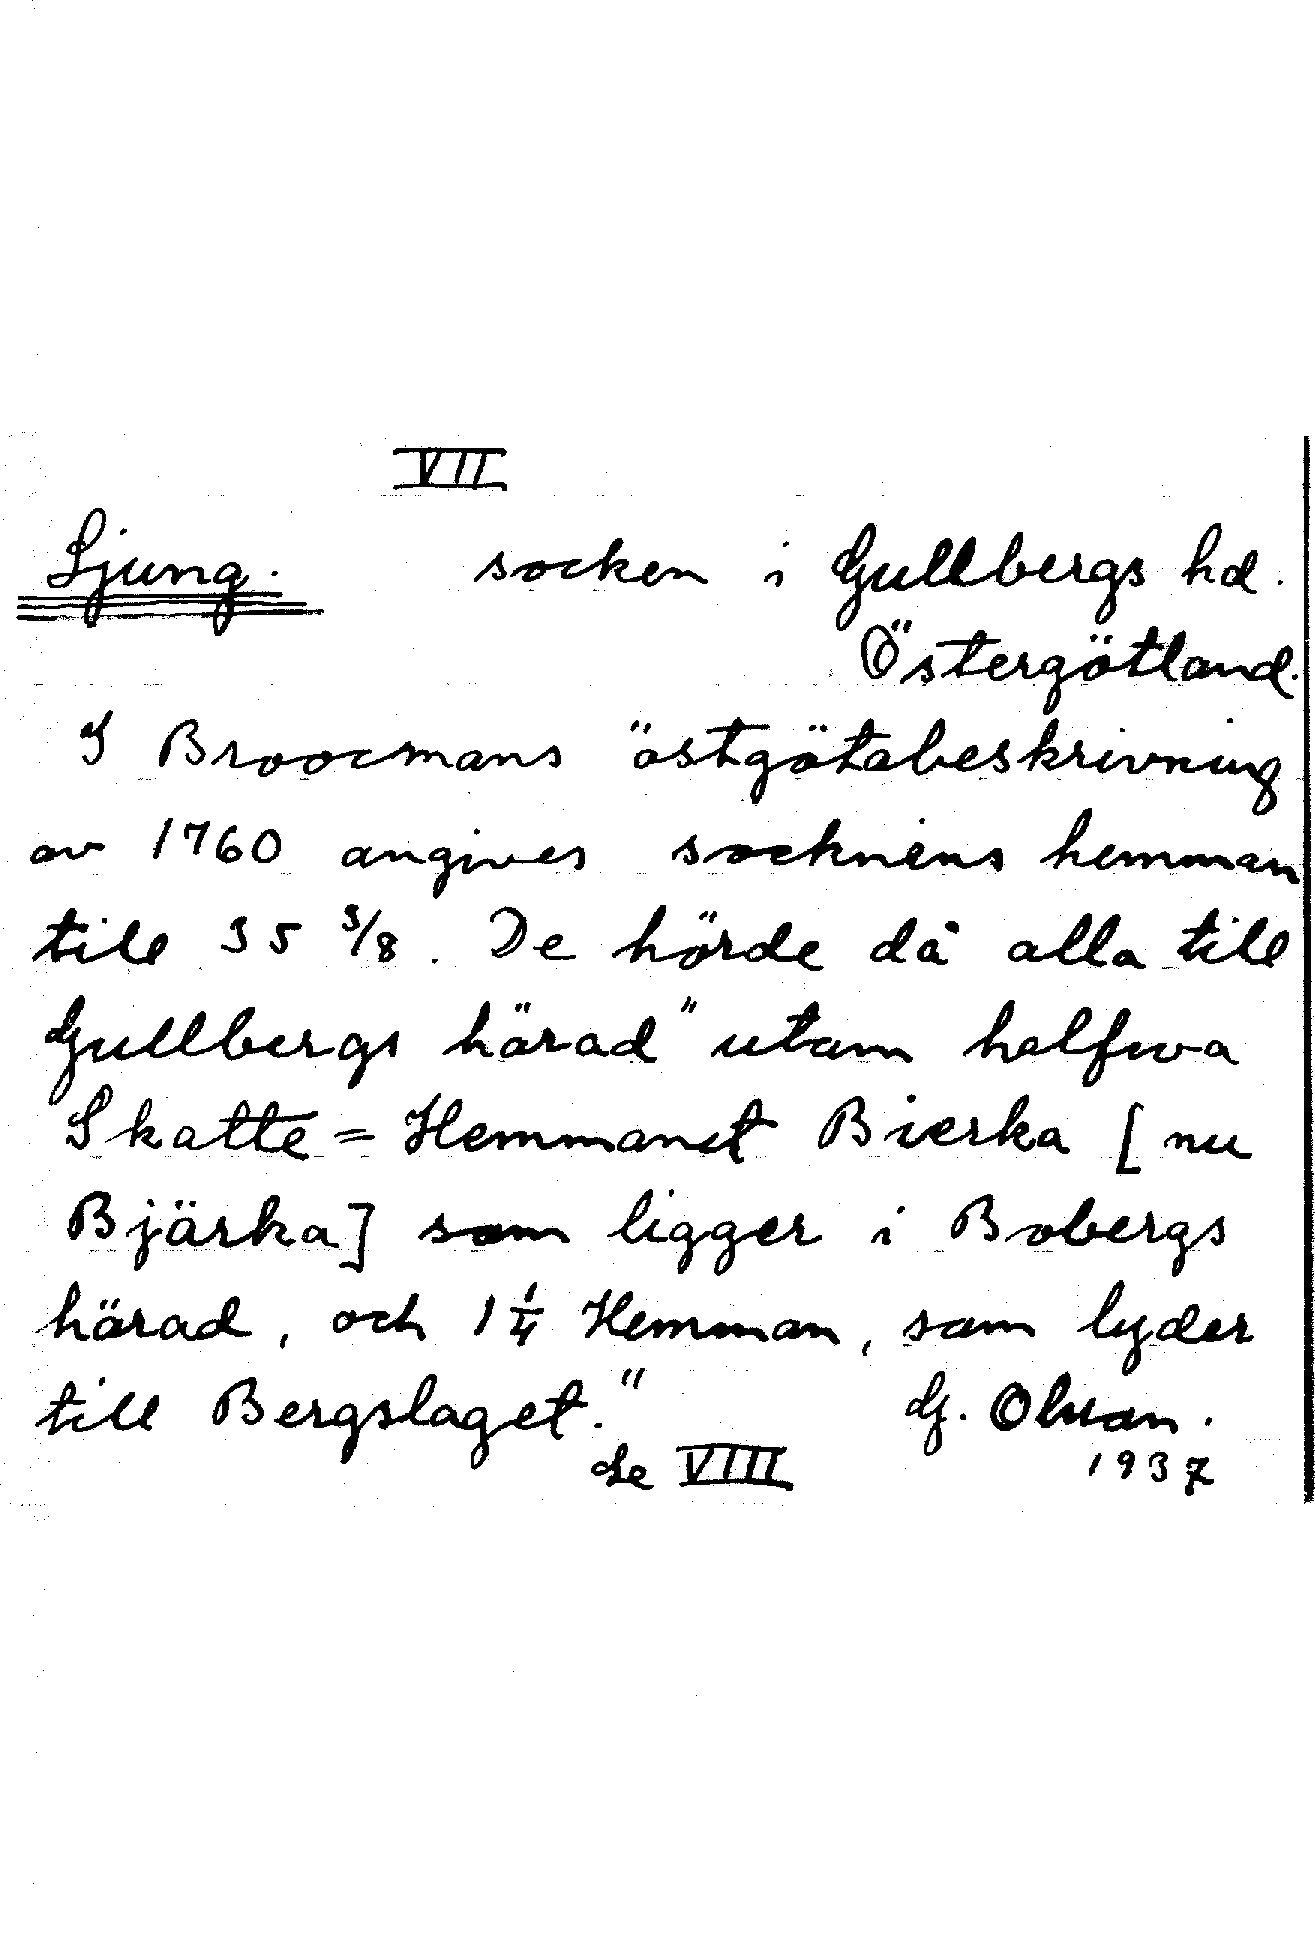 VII
Ljung. socken i Gullbergs hd.
Östergötland.
I Broocmans östgötabeskrivning
av 1760 angives socknens hemman
till 35 3/8. De hörde då alla till
Gullbergs härad "utom halfwa
Skatte=Hemmanet Bierka [nu
Bjärka] som ligger i Bobergs
härad, och 1 1/4 Hemman, som lyder
till Bergslaget." G. Olson.
Se VIII 1937